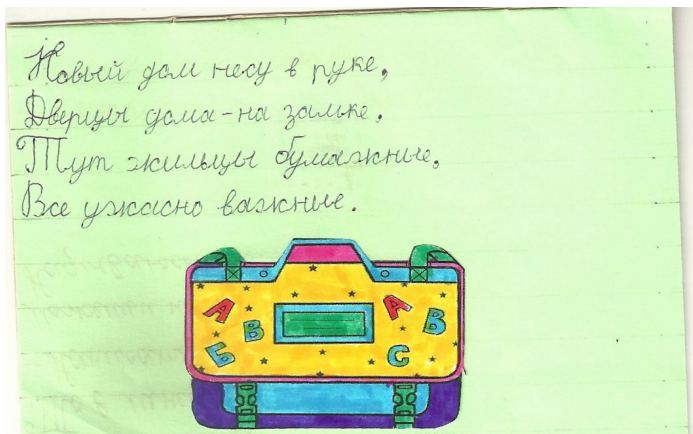 Новый дом несу в руке,
Дверцы дома - на замке.
Тут жильцы бумажные,
Все ужасно важные.
А
В
Б
А
В
С